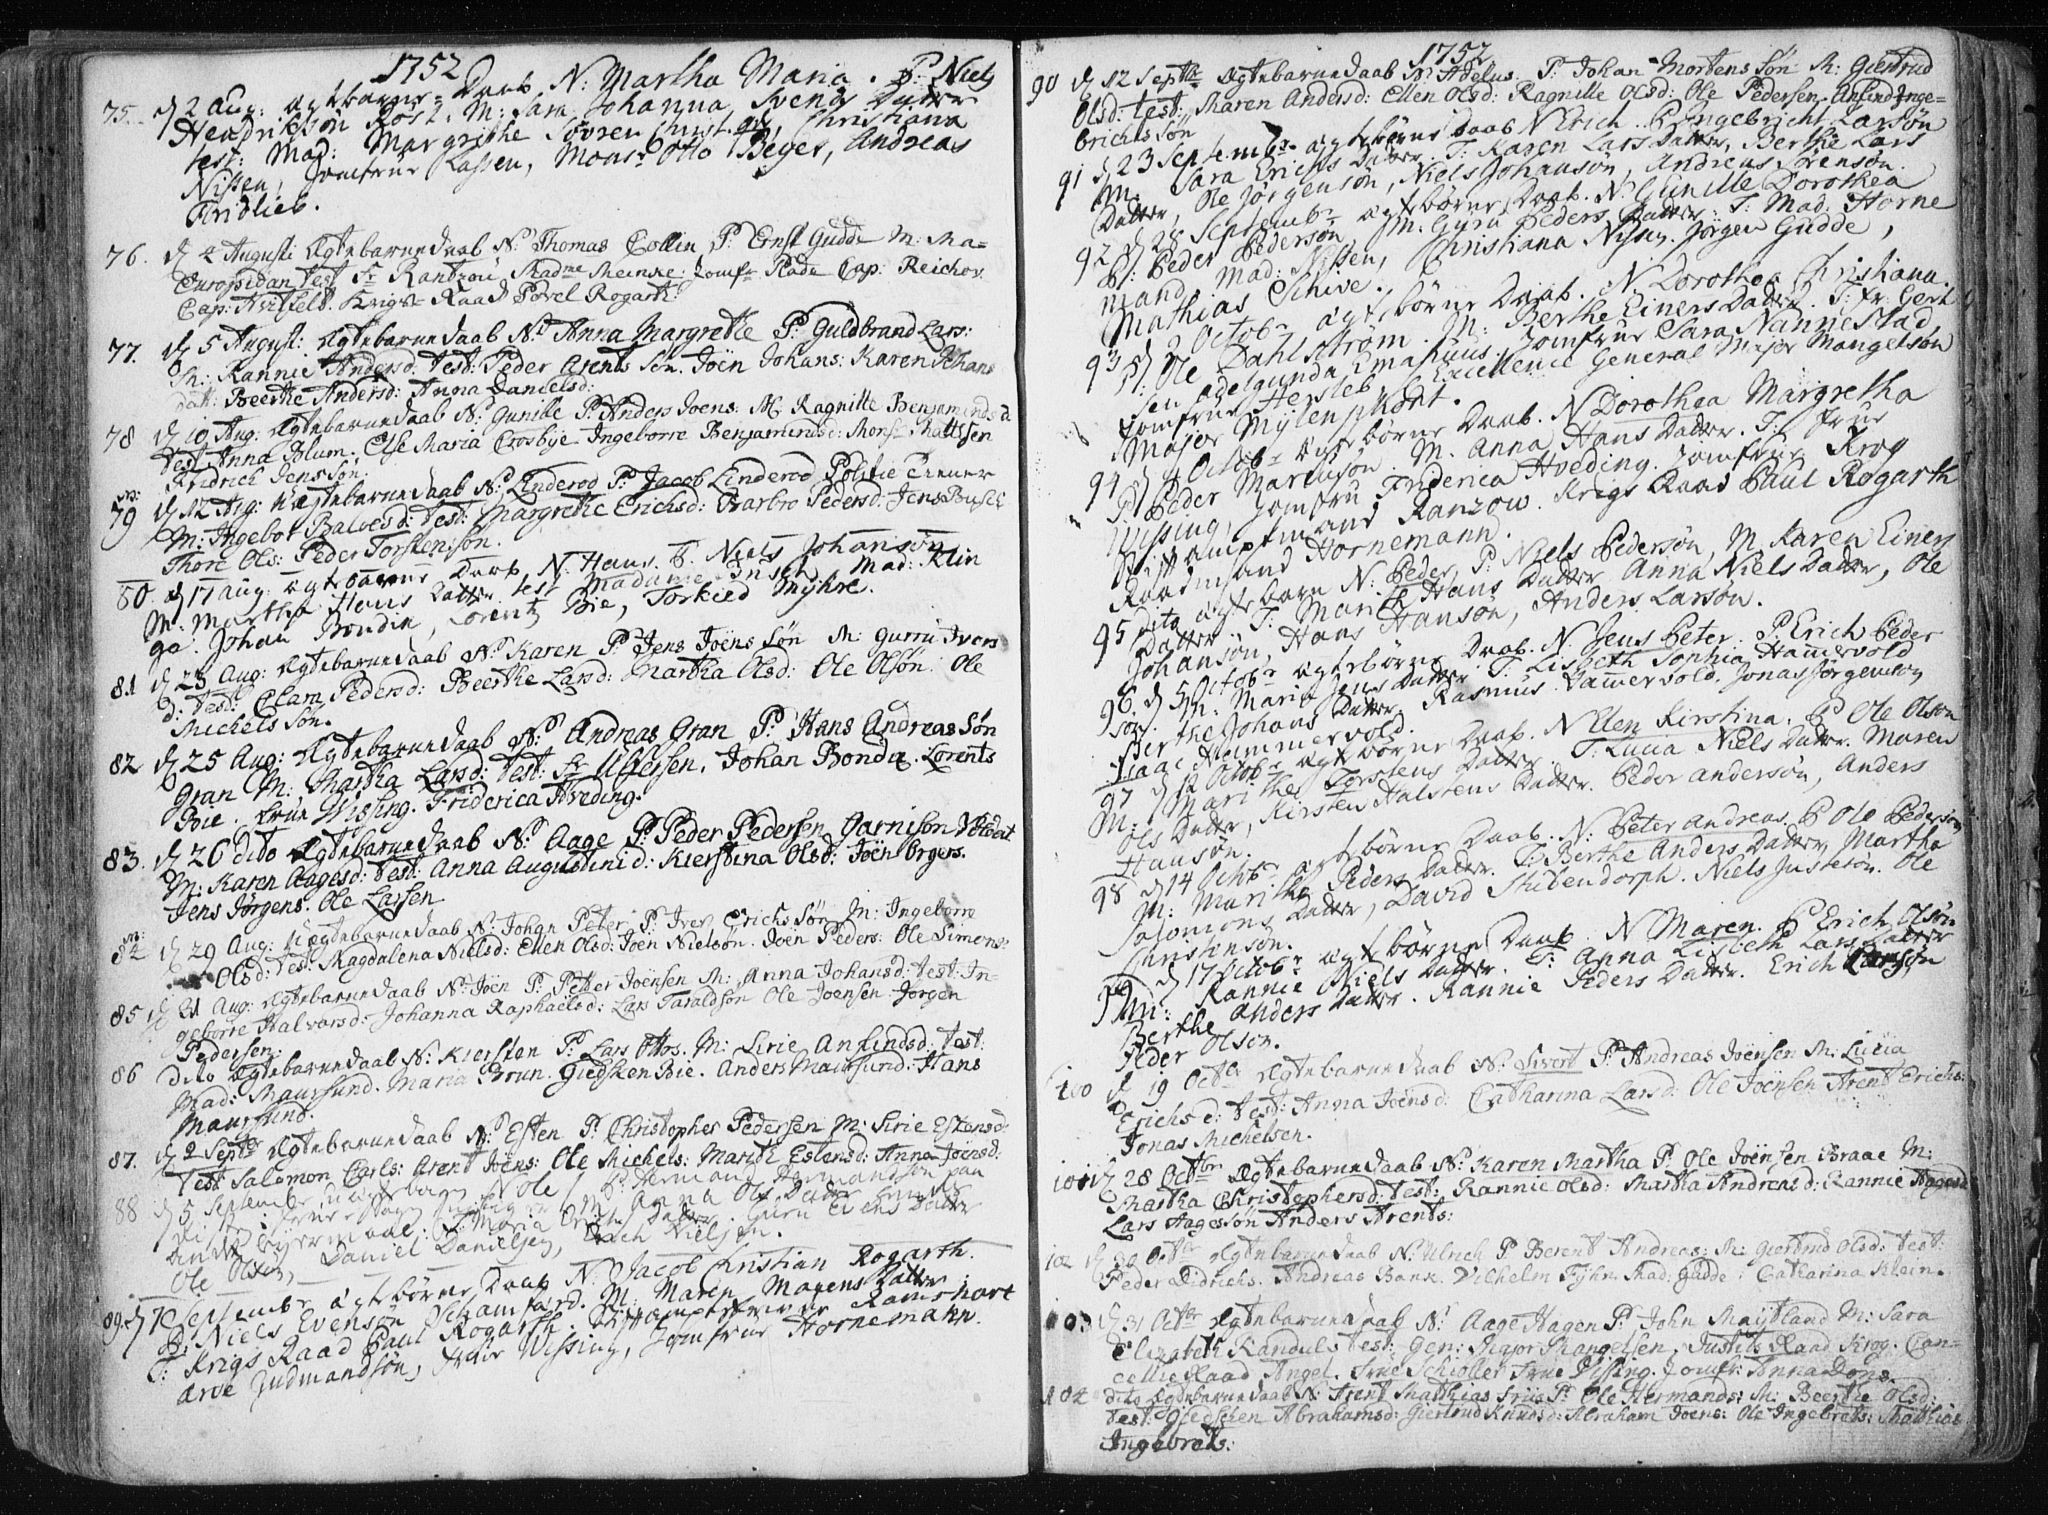 1752
75. d 2 Aug: ægtebørne Daab N: Martha Maria. P: Niels
Hendriksøn Rost. M: Sara Johanna Svends Datter
test: Mad: Margrethe Søvren Christiana
Nissen, Jomfrue Lassen, Mons: Otto Beyer, Andreas
Fridlieb.
76. d 4 Augusti Ægtebarnedaab N: Thomas Collin P: Ernst Gudde M: Ma=
test: Sr Rantzou Madme Meinke: Jomfr Rade Cap: Reichov
Cap: Hvitfeld. Krigs Raad Povel Rogarth:
77. d 5 August: Ægtebarnedaab N: Anna Margrethe P: Guldbrand Lars:
M: Rannie Andersd: test: Peder Arents Søn. Joen Johans: Karen Johans
dat: Beerthe Andersd: Anna Danielsd:
78 d 10 Aug: Ægtebarnedaab N: Gunille P: Anders Joens: M: Ragnille Benjaminsd
test: Anna Blum. Else Maria Crosbye Ingeborre Benjaminsd: Mons: Mattssen
Fridrich Jenssøn.
79 d 12 Aug: Uægtebarnedaab N: Linderod P: Jacob Linderod Politie Tienner
M: Ingebor Balvesd: test: Margrethe Erichsd: Barbro Pedersd: Jens Busch
Thore Ols: Peder Torstensøn.
80. d 17 Aug: ægtebørne Daab N: Hans. P. Niels Johansøn
M: Martha Hans Datter test Madame Mad: Klin
ge. Johan Bondin, Lorentz Bie, Torkied Myhre.
81 d 23 Aug: Ægtebarnedaab N: Karen P: Jens Joens søn M: Gurri Ivers
d: test: Clara Pedersd: Beerthe Larsd: Martha Olsd: Ole Olsøn: Ole
Michels Søn.
82 d 25 Aug: Ægtebarnedaab N: Andreas Gran P: Hans Andreas Søn
Gran M: Martha Larsd: test: Sr Ulfessen. Johan Bonda. Lorents
Bie. Frue Wissing. Friderica Hveding.
83. d 26 dito Ægtebarnedaab N: Aage P: Peder Pedersen Garnison Soldat
M: Karen Aagesd: test: Anna Augustinid: Kierstina Olsd: Joen Ørgers.
Jens Jørgens. Ole Larsen
84 d 29 Aug: Uægtebarnedaab N: Johan Peter P: Iver Erichssøn M: Ingeborre
Olsd: test: Magdalena Nielsd: Ellen Olsd: Joen Nielsøn. Joen Peders: Ole Simons:
85 d 21 Aug: Ægtebarnedaab N: Joen P: Petter Joensen M: Anna Johansd: test: In=
geborre Halvorsd: Johanna Raphaelsd: Lars Taraldsøn Ole Joensen. Jørgen
Pedersen:
86 dito Ægtebarnedaab N: Kiersten P: Lars Ottos. M: Sirie Anfindsd: test:
Mad: Maursund. Maria Brun. Giedsken Bie. Anders Maursund. Hans
Maursund.
87. d 2 Septbr Ægtebarnedaab N: Esten P: Christopher Pedersen M: Sirie Estensd:
test Salomon Carls: Arent Joens: Ole Michels: Marith Estensd: Anna Joensd:
88 d 5 Septembr N Ole P: Herman Hermandsøn paa
M: Anna Ols Datter
T: Maria Datter. Guru Evens Datter
Ole Olsøn, Daniel Danielsen, Erich Nielsen.
89. d 7 Septembr ægtebørne Daab N: Jacob Christian Rogarth.
P: Niels Evensøn Schamfard. M: Maren Mogens Datter
T: Krigs Raad Paul Rogarth. Ramshart
Arve Gudmandsøn, Frue Wissing, Jomfrue Hornemann.
1752
90 d 12 Septbr Ægtebarnedaab N: Adelus. P: Johan Mortens Søn M: Giertrud
Olsd: test: Maren Andersd: Ellen Olsd: Ragnille Olsd: Ole Pedersen. Anfind Inge=
brichtssøn
91 d 23 Septembr ægtebørne Daab N Erich. P Ingebricht Larsøn
M: Sara Erichs Datter. T: Karen Lars Datter, Berthe Lars
Datter, Ole Jørgensøn, Niels Johansøn, Andreas Sørensøn.
92 d 28 Septembr ægtebørne Daab. N: Gunille Dorothea
P: Peder Pedersøn M: Gyru Peders Datter. T: Mad: Horne
mand, Mad: Nissen, Christiana Nissen. Jørgen Gudde,
Mathias Schive.
93 d 2 Octobr ægtebørne Daab. N Dorothea Christiana.
P: Ole Dahlstrøm. M: Berthe Einers Datter. T: Fr: Gert
sen Adelgunda Emahuus. Jomfrue Sara Nannestad,
Jomfrue Hersleb. Excellence General Major Mangelsøn
Major Mylenphort.
94 d 4 Octobr ægtebørne Daab. N Dorothea Margretha
P Peder Martinsøn. M. Anna Hans Datter. T: Frue
Wissing, Jomfru Friderica Hveding. Jomfrue Krog
Stiftamptmand Ranzow. Krigs Raad Paul Rogarth
Raadmand Hornemann.
95 dito ægtebarn N: Peder P: Niels Pedersøn, M. Karen Einers
Datter. T: Marith Hans Datter. Anna Niels Datter, Ole
Johansøn, Hans Hansøn, Anders Larsøn.
96. d 5 Octobr ægtebørne Daab. N. Jens Peter. P Erich Peder
søn. M: Maria Jens Datter. T. Lisbeth Sophia Hammervold
Berthe Johans Datter. Rasmus Hammervold. Jonas Jørgensøn
Isaac Hammervold.
97 d 12 Octobr ægtebørne Daab. N Elen Kirstina. P Ole Olsøn
M: Marithe Torstens Datter. T: Lucia Niels Datter. Maren
Ols Datter, Kirsten Halstens Datter. Peder Andersøn, Anders
Hansøn.
98 d 14 Octobr ægtebørne Daab. N: Peter Andreas. P Ole Pedersøn
M: Marithe Peders Datter. T: Berthe Anders Datter, Martha
Salomons Datter, David Stubendorph. Niels Justesøn. Ole
Christensøn.
99 d 17 Octobr ægtebørne Daab N Maren. P Erich Olsøn.
M: Rannie Niels Datter. T: Anna Lisbeth Lars Datter
Berthe Anders Datter. Rannie Peders Datter. Erich Larsøn
Peder Olsøn.
100 d 19 Octbr Ægtebarnedaab N: Sivert P: Andreas Joensen M: Lucia
Erichsd: test: Anna Joensd: Catharina Larsd: Ole Joensen Arent Erichs:
Jonas Michelsen.
101 d 28 Octbr Ægtebarnedaab N: Karen Martha P: Ole Joensen Braae M:
Martha Christophersd: test: Rannie Olsd: Martha Andreasd: Rannie Aagesd
Lars Aagessøn Anders Arents:
102 d 30 Octbr Ægtebarnedaab N: Ulrich P: Berent Andreas: M: Giertrud Olsd: test:
Peder Didrichs. Andreas Bank. Vilhelm Fyhn. Mad: Gudde: Catharina Klein.
103 d 31 Octbr Ægtebarnedaab N: Aage Hagen P: John Maytland M: Sara
Elizabeth Randuls test: Gen: Major Mangelsen. Justits Raad Krog. Can=
cellie Raad Angel. Frue Schiøller Frue Vissing. Jomfr: Anna Dons.
104 dito Ægtebarnedaab N: Arent Matthias Friis P: Ole Hermands: M: Beerthe Olsd:
test: Giedschen Abrahamsd: Giertrud Knudsd: Abraham Joens: Ole Ingebrets: Mathias
Ingebrets: